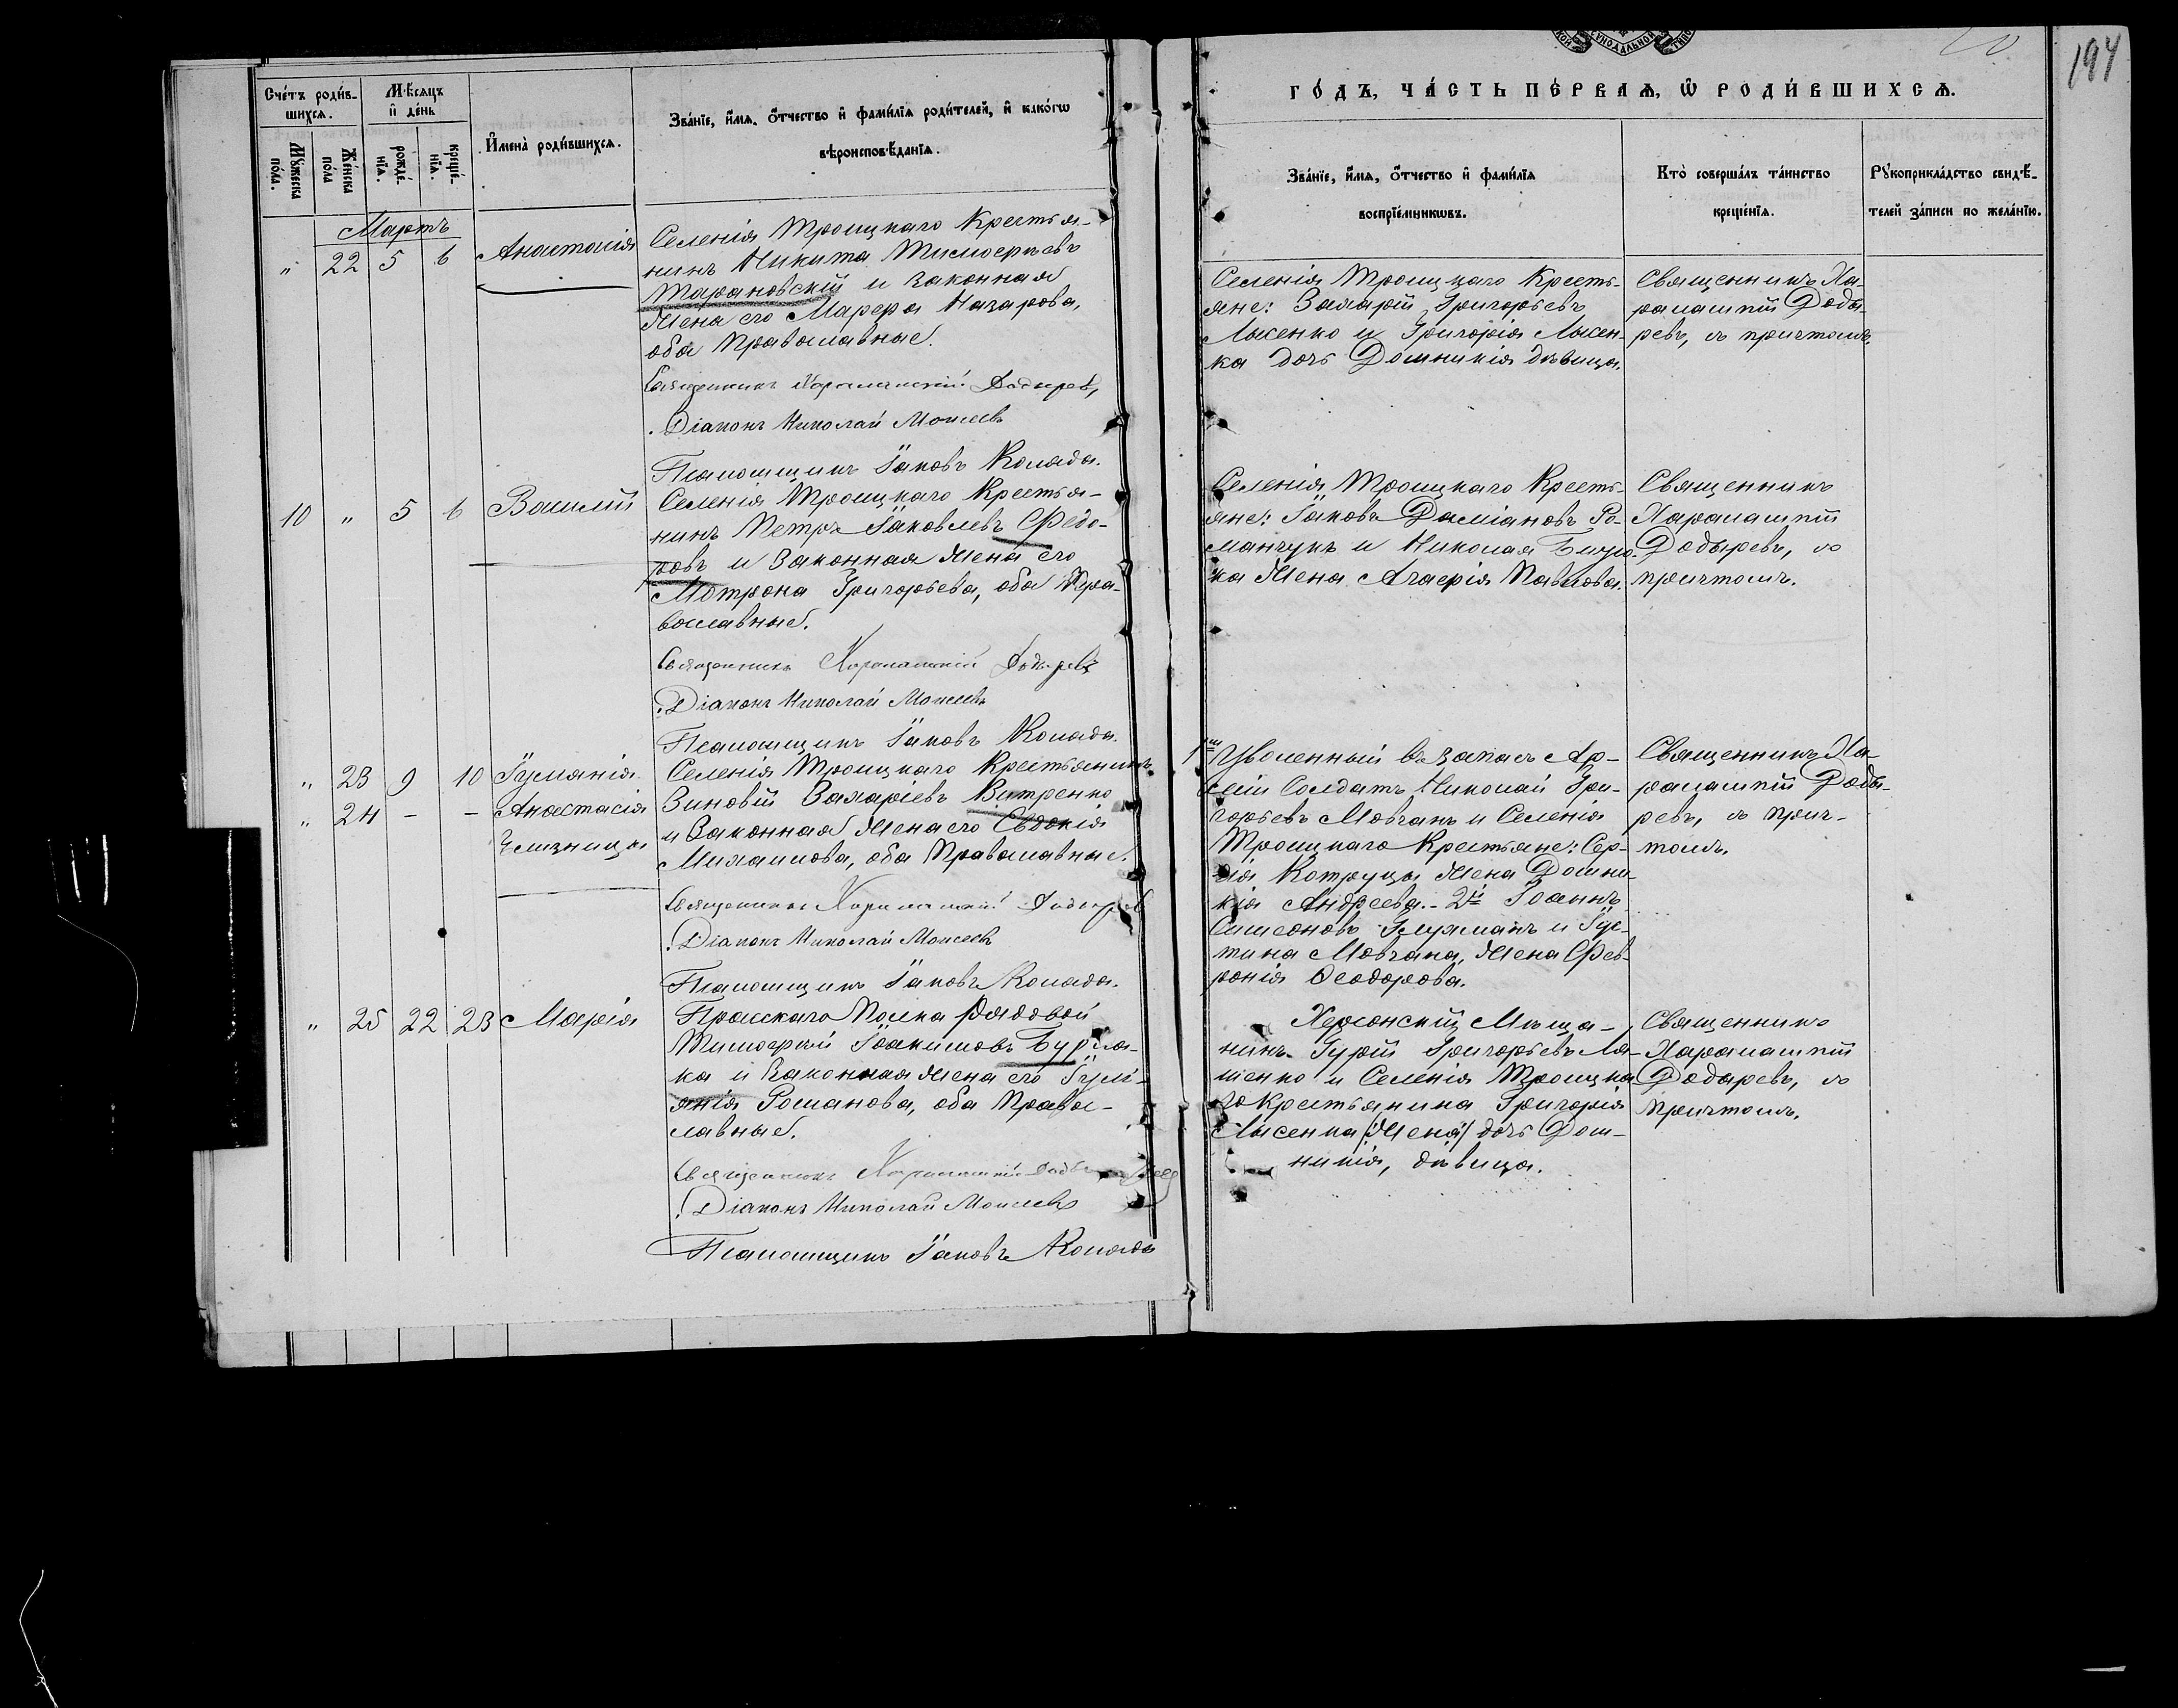 Счéтъ роди́в-
шихсѧ.
Мѣ́сѧцъ
и҆ де́нь
Мꙋ́жеска
по́ла.
Же́нска
по́ла
рожде́-
нїѧ.
креще́-
нїѧ.
И҆мена̀ роди́вшихсѧ.
Зва́нїе, и҆́мѧ, ѻ҆́тчество и҆ фами́лїѧ роди́телей, и҆ како́гѡ
вѣроисповѣ́данїѧ.
Мартъ
" 22 5 6 Анастасія
Селенія Троицкаго Крестья-
нинъ Никита Тимоѳеевъ
Тарановскій и законная
жена его Марѳа Назарова,
оба Православные.
Священникъ Харалампій Додыревъ,
Діаконъ Николай Моисеевъ
Псаломщикъ Іаковъ Коляда.
10 " 5 6 Василій
Селенія Троицкаго Крестья-
нинъ Петръ Іаковлевъ Федо-
ровъ и Законная жена его
Мотрона Григорьева, оба Пра-
вославные.
Священникъ Харалампій Додыревъ
Діаконъ Николай Моисеевъ
Псаломщикъ Іаковъ Коляда.
" 23 9 10 Іуліанія
" 24 - - Анастасія
Близницы
Селенія Троицкаго Крестьянинъ
Зиновій Захаріевъ Витренко
и Законная жена его Евдокія
Михаилова, оба Православные.
Священникъ Харалампій Додыревъ
Діаконъ Николай Моисеевъ
Псаломщикъ Іаковъ Коляда.
" 25 22 23 Марія
Пражскаго Полка рядовой
Тимоѳей Іоакимовъ Бурла-
ка и Законная жена его Іулі-
анія Романова, оба Правос-
лавные.
Священникъ Харалампій Додыревъ
Діаконъ Николай Моисеевъ
Псаломщикъ Іаковъ Коляда
194
го́дъ, ча́сть пе́рваѧ, ѽ роди́вшихсѧ.
Зва́нїе, и҆́мѧ, ѻ҆́тчество и҆ фами́лїѧ
воспрїе́мникѡвъ.
Кто̀ соверша́лъ та́инство
креще́нїѧ.
Рꙋкоприкла́дство свидѣ́-
телей за́писи по жела́нїю.
Селенія Троицкаго Кресть-
яне: Захарій Григорьевъ
Лысенко и Григорія Лысен-
ка дочь Домникія дѣвица.
Священникъ Ха-
ралампій Доды-
ревъ, съ причтомъ.
Селенія Троицкаго Кресть-
яне: Іаковъ Даміановъ Ро-
манчукъ и Николая
ка жена Агаѳія Павлова.
Священникъ
Харалампій
Додыревъ, съ
причтомъ.
1й Уволенный въ запасъ Ар-
міи Солдатъ Николай Гри-
горьевъ Мовчанъ и Селенія
Троицкаго Крестьяне: Сер-
гія Котруцы жена Домни-
кія Андреева. - 2й Іоаннъ
Симеоновъ и Іус-
тина Мовчана, жена Фев-
ронія Ѳеодорова.
Священникъ Ха-
ралампій Доды-
ревъ, съ прич-
томъ.
Херсонскій Мѣща-
нинъ Гурій Григорьевъ Ля-
шенко и Селенія Троицка
го Крестьянина Григорія
Лысенка /жена/ дочь Дом-
никія, дѣвица.
Священникъ
Харалампій
Додыревъ, съ
причтомъ.